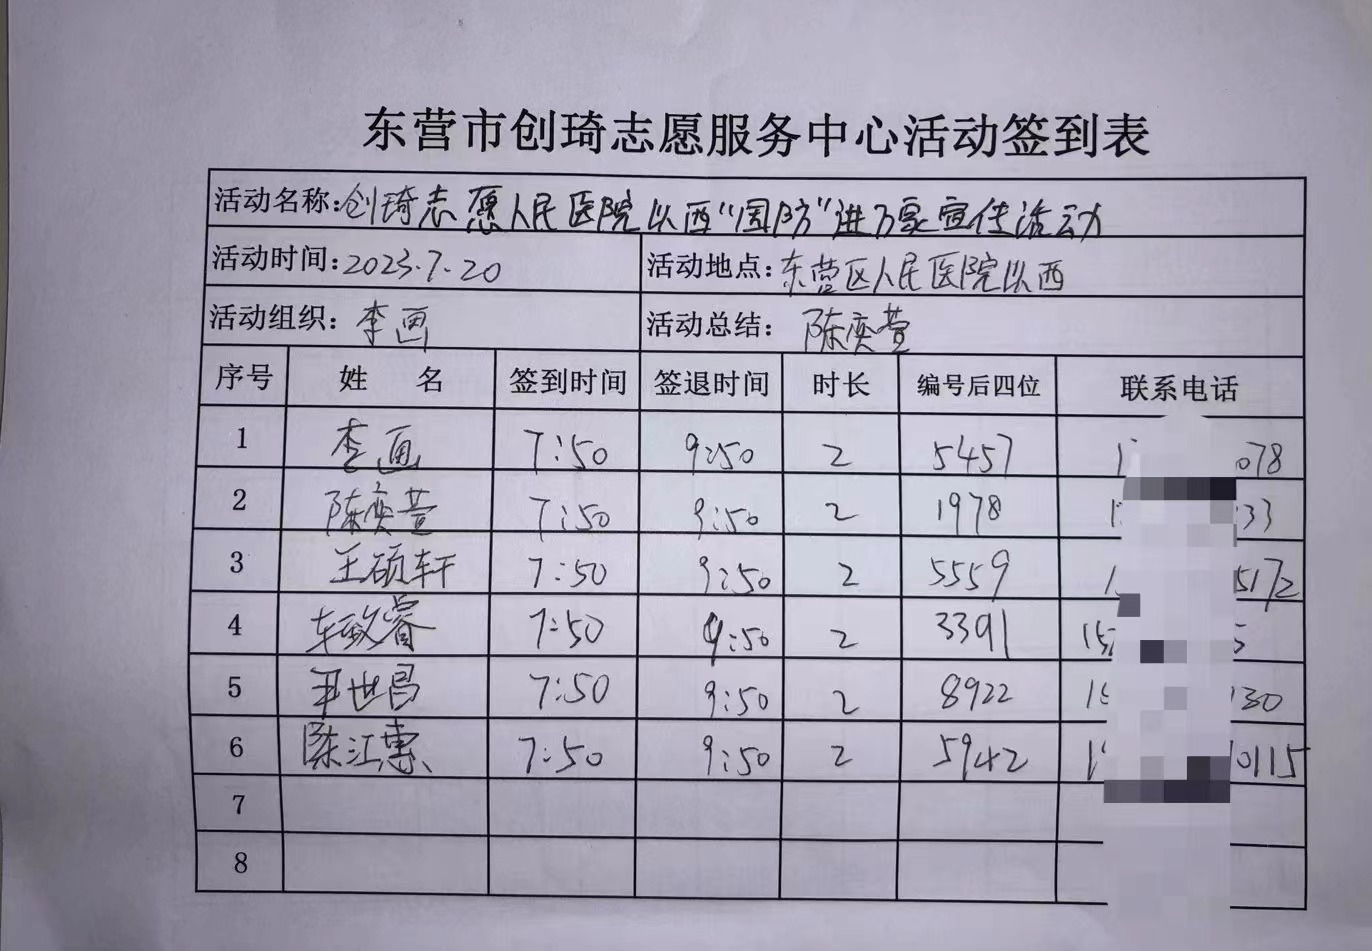 东营市创琦志愿服务中心活动签到表
活动名称:创琦志愿人民医院以西“国防”进万家宣传活动
活动时间:2023.7.20 活动地点:东营区人民医院以西
活动组织:李画 活动总结:陈奕萱
序号 姓名 签到时间 签退时间 时长 编号后四位 联系电话
1 李画 7:50 9:50 2 5457 078
2 陈奕萱 7:50 9:50 2 1978 33
3 王硕轩 7:50 9:50 2 5559 5172
4 车致睿 7:50 9:50 2 3391 15 5
5 世昌 7:50 9:50 2 8922 130
6 陈江惠 7:50 9:50 2 5942 0115
7
8